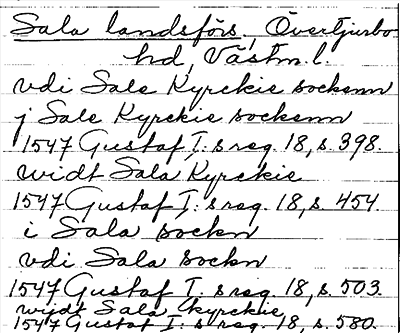 Sala landsförs., Övertjurbo
hd, Västm. l.
vdi Sale Kyrckie sockenn
j Sale Kyrckie sockenn
1547 Gustaf I:s reg. 18, s. 398.
widt Sala Kyrckie
1547 Gustaf I:s reg. 18, s. 454.
i Sala sockn
vdi Sala sockn
1547 Gustaf I:s reg. 18, s. 503.
wijdt Sala Kyrckie
1547 Gustaf I:s reg. 18, s. 580.